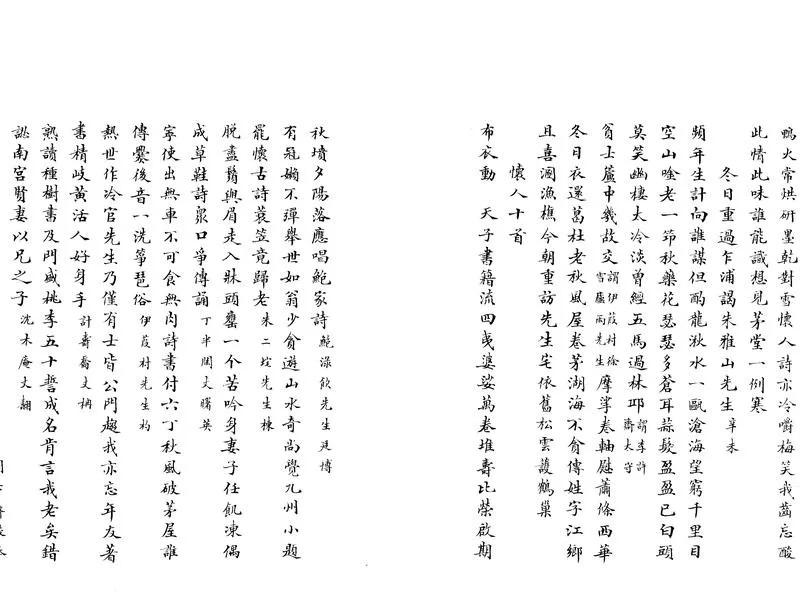 鴨火常烘研墨乾對雪懷人詩亦冷嚼梅笑我齒忘酸
此情此味誰能識想見茅堂一例寒
冬日重過乍浦謁朱雅山先生辛未
頻年生計向誰謀但酌龍湫水一甌滄海望窮千里目
空山唫老一筇秋藥花瑟瑟多蒼耳蒜髮盈盈已白頭
莫笑幽棲太冷淡曾經五馬過林邱謂李許齋太守
貧士蘆中幾故交謂伊葭村徐雪廬兩先生摩挲卷軸慰蕭條西華
冬日衣還葛杜老秋風屋卷茅湖海不貪傳姓字江鄉
且喜溷漁樵今朝重訪先生宅依舊松雲護鶴巢
懷人十首
布衣動 天子書籍流四夷婆娑萬卷堆壽比榮啟期
秋墳夕陽落應唱鮑家詩鮑淥飲先生廷博
有冠嬾不彈舉世如翁少貪遊山水奇尚覺九州小題
罷懷古詩蓑笠竟歸老朱二垞先生棟
脫盡鬚與眉走入牀頭甕一个苦吟身妻子任飢凍偶
成草鞋詩眾口爭傳誦丁半閒文勝英
寧使出無車不可食無肉詩書付六丁秋風破茅屋誰
傳爨後音一洗箏琶俗伊葭村先生灼
熱世作冷官先生乃僅有士皆公門趨我亦忘年友著
書精岐黃活人好身手計壽喬文柟
熟讀種樹書及門盛桃李五十誓成名肯言我老矣錯
訛南宮賢妻以兄之子沈禾庵文翽